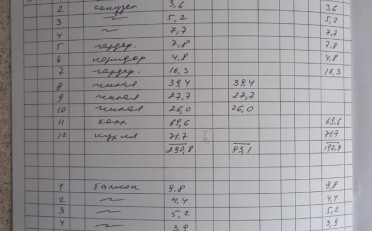 2 санузел 3,6 3,6
3 〃 5,2 5,2
4 〃 7,7 7,7
5 гардер. 7,8 7,8
6 коридор 4,8 4,8
7 гардер. 16,3 16,3
8 жилая 39,4 39,4
9 жилая 27,7 27,7
10 жилая 26,0 26,0
11 холл 69,6 69,6
12 кухня 71,7 71,7
290,8 89,1 192,7
1 балкон 9,8 9,8
2 〃 4,4 4,4
3 〃 5,2 5,2
4 〃 3,9 3,9